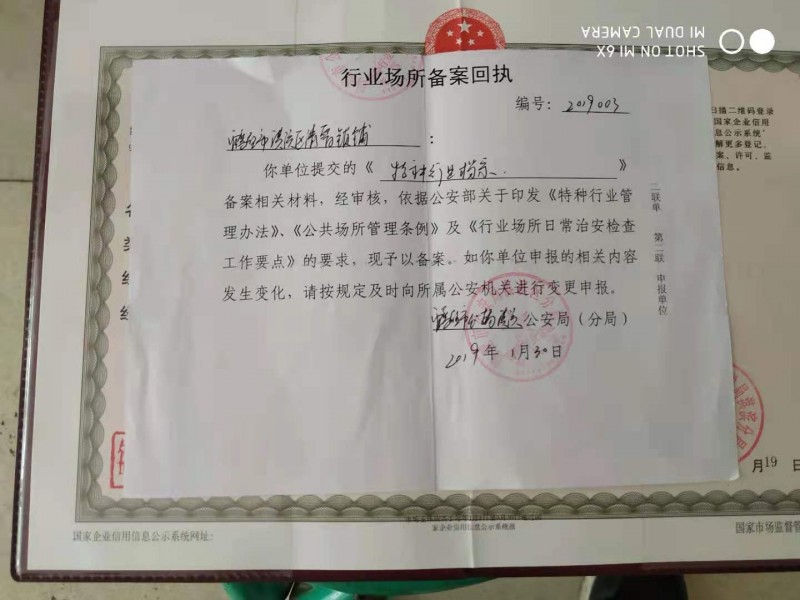 SHOT ON MI 6X
MI DUAL CAMERA
行业场所备案回执
编号：2019003
：
你单位提交的《 》
备案相关材料，经审核，依据公安部关于印发《特种行业管
理办法》、《公共场所管理条例》及《行业场所日常治安检查
工作要点》的要求，现予以备案。如你单位申报的相关内容
发生变化，请按规定及时向所属公安机关进行变更申报。
公安局（分局）
2019年1月30日
二联单 第二联 申报单位
扫描二维码登录
国家企业信用
信息公示系统
解更多登记、
案、许可、监
信息。
月19日
国家企业信用信息公示系统网址：
国家市场监督